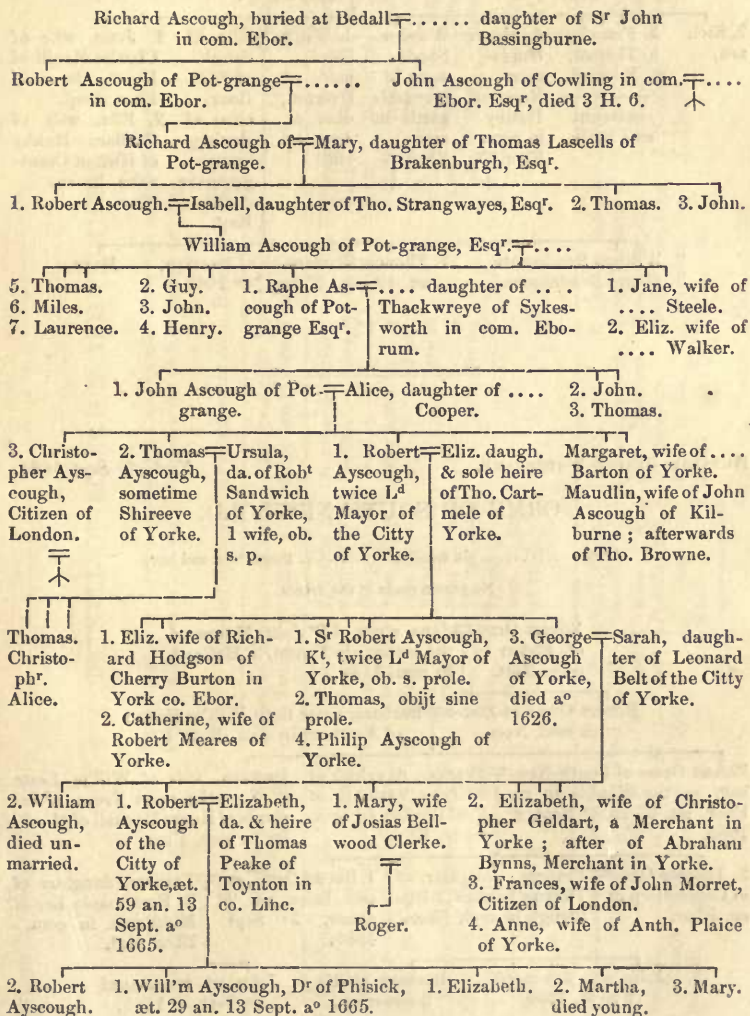 Richard Ascough, buried at Bedall...... daughter of Sʳ John
in com. Ebor. Bassingburne.
Robert Ascough of Pot-grange......
in com. Ebor.
John Ascough of Cowling in com.....
Ebor. Esqʳ, died 3 H. 6.
Richard Ascough of Mary, daughter of Thomas Lascells of
Pot-grange. Brakenburgh, Esqʳ.
1. Robert Ascough. Isabell, daughter of Tho. Strangwayes, Esqʳ. 2. Thomas. 3. John.
William Ascough of Pot-grange, Esqʳ.....
5. Thomas.
6. Miles.
7. Laurence.
2. Guy.
3. John.
4. Henry.
1. Raphe As-
cough of Pot-
grange Esqʳ.
.... daughter of ....
Thackwreye of Sykes-
worth in com. Ebo-
rum.
1. Jane, wife of
.... Steele.
2. Eliz. wife of
.... Walker.
1. John Ascough of Pot-
grange.
Alice, daughter of ....
Cooper.
2. John.
3. Thomas.
3. Christo-
pher Ays-
cough,
Citizen of
London.
2. Thomas
Ayscough,
sometime
Shireeve
of Yorke.
Ursula,
da. of Robᵗ
Sandwich
of Yorke,
1 wife, ob.
s. p.
1. Robert
Ayscough,
twice Lᵈ
Mayor of
the Citty
of Yorke.
Eliz. daugh.
& sole heire
of Tho. Cart-
mele of
Yorke.
Margaret, wife of ....
Barton of Yorke.
Maudlin, wife of John
Ascough of Kil-
burne ; afterwards
of Tho. Browne.
Thomas.
Christo-
phʳ.
Alice.
1. Eliz. wife of Rich-
ard Hodgson of
Cherry Burton in
York co. Ebor.
2. Catherine, wife of
Robert Meares of
Yorke.
1. Sʳ Robert Ayscough,
Kᵗ, twice Lᵈ Mayor of
Yorke, ob. s. prole.
2. Thomas, obijt sine
prole.
4. Philip Ayscough of
Yorke.
3. George
Ascough
of Yorke,
died aᵒ
1626.
Sarah, daugh-
ter of Leonard
Belt of the Citty
of Yorke.
2. William
Ascough,
died un-
married.
1. Robert
Ayscough
of the
Citty of
Yorke, æt.
59 an. 13
Sept. aᵒ
1665.
Elizabeth,
da. & heire
of Thomas
Peake of
Toynton in
co. Linc.
1. Mary, wife
of Josias Bell-
wood Clerke.
Roger.
2. Elizabeth, wife of Christo-
pher Geldart, a Merchant in
Yorke ; after of Abraham
Bynns, Merchant in Yorke.
3. Frances, wife of John Morret,
Citizen of London.
4. Anne, wife of Anth. Plaice
of Yorke.
2. Robert
Ayscough.
1. Will'm Ayscough, Dʳ of Phisick,
æt. 29 an. 13 Sept. aᵒ 1665.
1. Elizabeth.
2. Martha,
died young.
3. Mary.